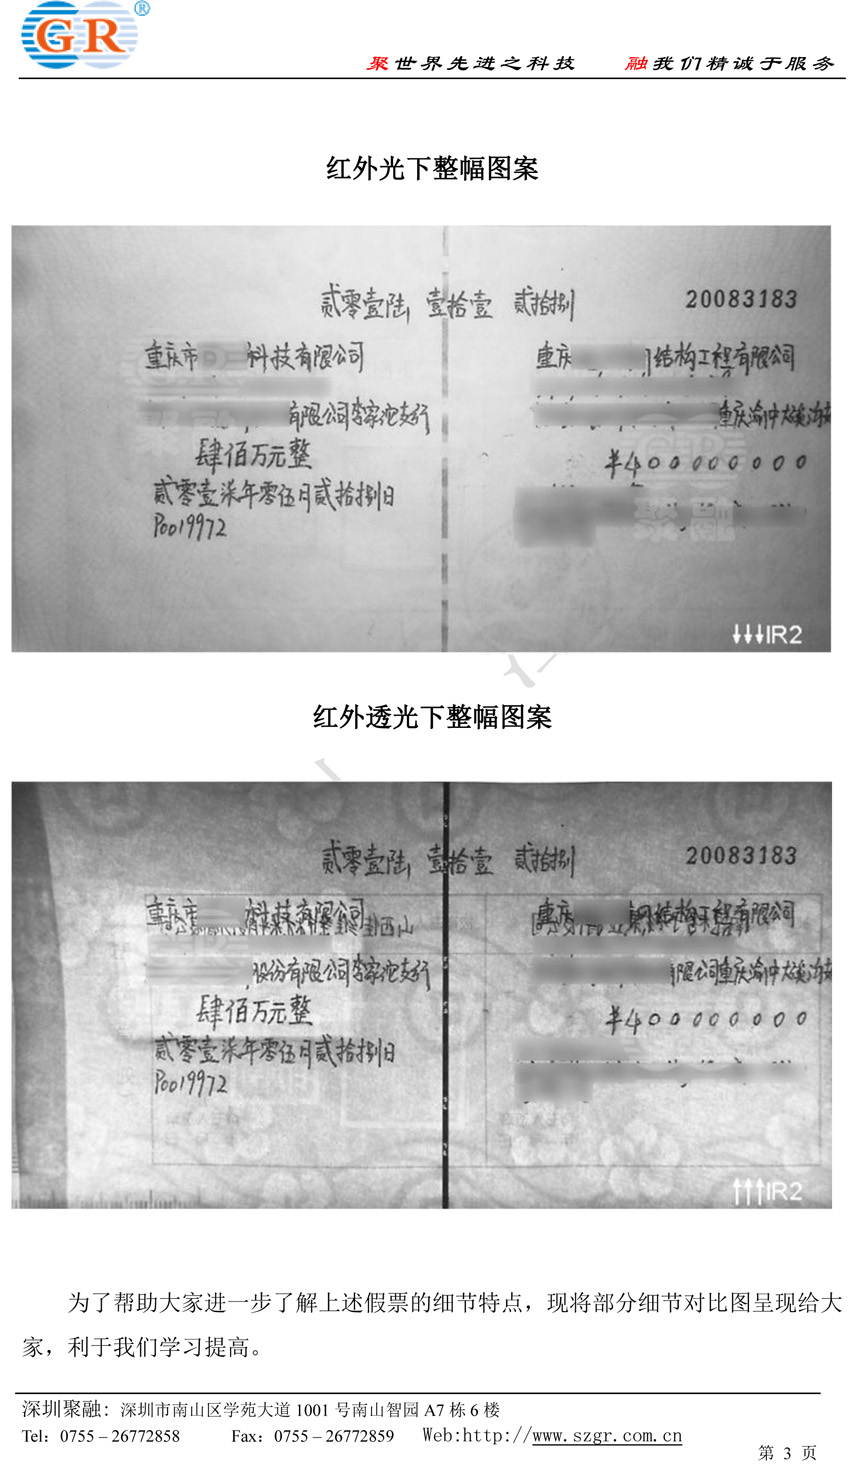 GR®
聚世界先进之科技 融我们精诚于服务
红外光下整幅图案
贰零壹陆 壹拾壹 贰拾捌 20083183
重庆市 科技有限公司 重庆 结构工程有限公司
有限公司李家沱支行 重庆渝中大溪沟支
肆佰万元整 ¥400000000
贰零壹柒年零伍月贰拾捌日
P0019972
GR
聚融
GR
聚融
↓↓↓IR2
红外透光下整幅图案
贰零壹陆 壹拾壹 贰拾捌 20083183
重庆市 科技有限公司 重庆 钢结构工程有限公司
股份有限公司李家沱支行 有限公司重庆渝中大溪沟支
肆佰万元整 ¥400000000
贰零壹柒年零伍月贰拾捌日
P0019972
↑↑↑IR2
为了帮助大家进一步了解上述假票的细节特点，现将部分细节对比图呈现给大
家，利于我们学习提高。
深圳聚融：深圳市南山区学苑大道 1001 号南山智园 A7 栋 6 楼
Tel：0755 – 26772858 Fax：0755 – 26772859 Web:http://www.szgr.com.cn
第 3 页